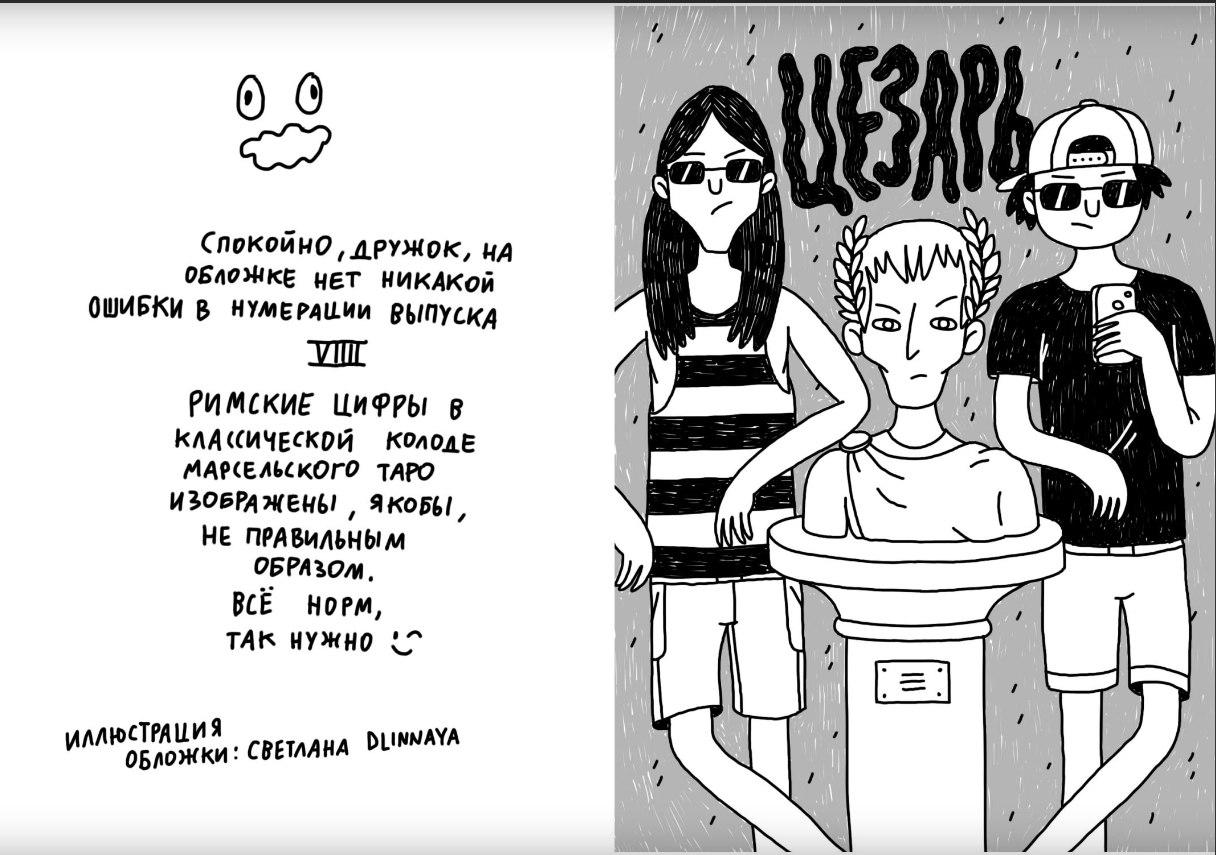 СПОКОЙНО, ДРУЖОК, НА
ОБЛОЖКЕ НЕТ НИКАКОЙ
ОШИБКИ В НУМЕРАЦИИ ВЫПУСКА
VIIII
РИМСКИЕ ЦИФРЫ В
КЛАССИЧЕСКОЙ КОЛОДЕ
МАРСЕЛЬСКОГО ТАРО
ИЗОБРАЖЕНЫ, ЯКОБЫ,
НЕ ПРАВИЛЬНЫМ
ОБРАЗОМ.
ВСЁ НОРМ,
ТАК НУЖНО
ИЛЛЮСТРАЦИЯ
ОБЛОЖКИ: СВЕТЛАНА DLINNAYA
ЦЕЗАРЬ